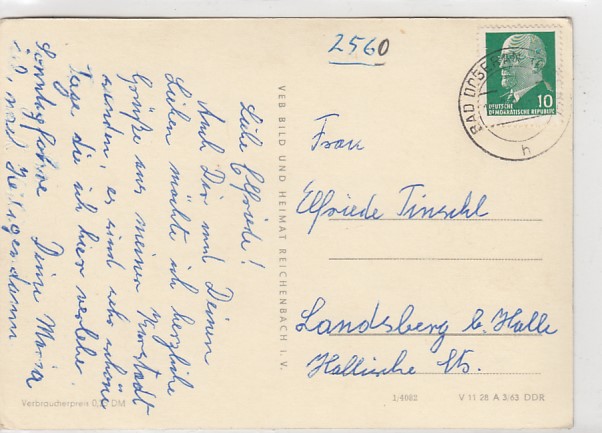 2560
BAD DOBERAN
h
10
DEUTSCHE
DEMOKRATISCHE REPUBLIK
Liebe Elfriede!
Auch Dir und Deinen
Lieben möchte ich herzliche
Grüße aus meiner Kurstadt
senden, es sind sehr schöne
Tage die ich hier verlebe.
Deine Maria
z. Z. noch Heiligendamm
VEB BILD UND HEIMAT REICHENBACH I. V.
Frau
Elfriede Tinschl
Landsberg b. Halle
Hallische Str.
Verbraucherpreis 0,20 DM
1/4082
V 11 28 A 3/63 DDR